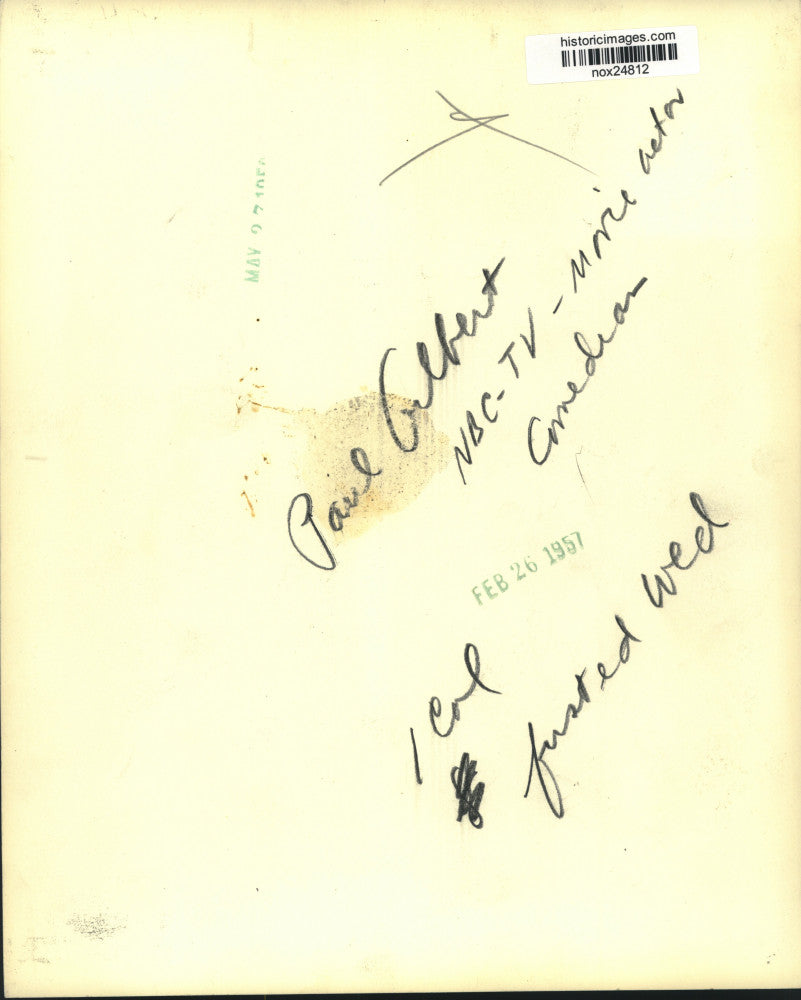 historicimages.com
nox24812
Paul Gilbert
NBC-TV - Movie actor
Comedian
MAY 27
FEB 26 1957
1 Col
Wed